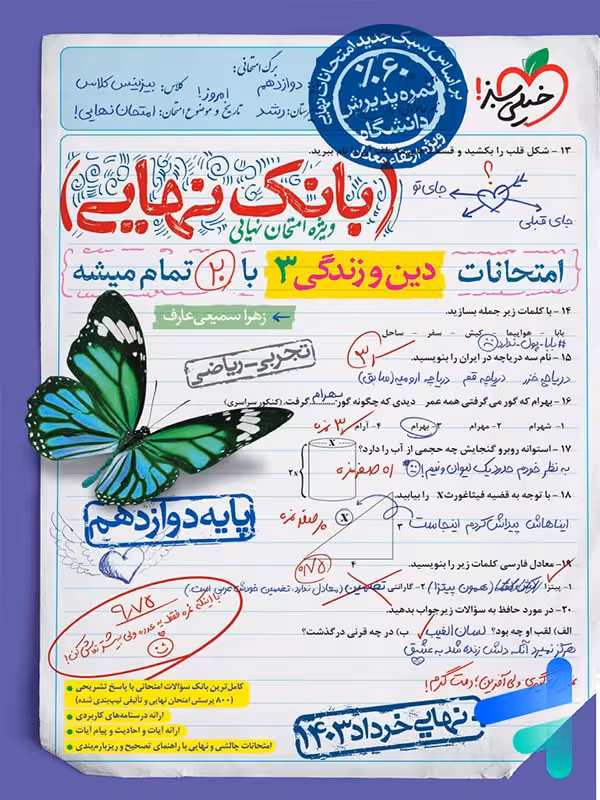 برگ امتحانی:
دوازدهم
کلاس: بیزینس کلاس
امروز!
رشد
تاریخ و موضوع امتحان: امتحان نهایی!
بر اساس سبک جدید امتحانات نهایی
٪۶۰
نمره پذیرش
دانشگاه
ویژه ارتقاء معدل
خیلی سبز!
۱۳ - شکل قلب را بکشید و
نام ببرید.
؟
جای تو
جای قبلی
(بانک نهایی)
ویژه امتحان نهایی
امتحانات دین و زندگی ۳ با ۲۰ تمام میشه
زهرا سمیعی عارف
تجربی - ریاضی
۱۴ - با کلمات زیر جمله بسازید.
بابا - هواپیما - کیش - سفر - ساحل
#بابا_پول_ندارد
۱۵ - نام سه دریاچه در ایران را بنویسید.
دریاچه خزر دریاچه قم دریاچه ارومیه (سابق)
۱۶ - بهرام که گور می گرفتی همه عمر دیدی که چگونه گور بهرام گرفت. (کنکور سراسری)
۱- شهرام ۲- مهرام ۳- بهرام ۴- آرام
۳ نمره
۱۷ - استوانه روبرو گنجایش چه حجمی از آب را دارد؟
به نظر خودم حدود یک لیوان و نیم!
صفر نمره
x
۲x
۱۸ - با توجه به قضیه فیثاغورث x را بیابید.
ایناهاش پیداش کردم اینجاست
صفر نمره
x
۳
۴
پایه دوازدهم
۱۹ - معادل فارسی کلمات زیر را بنویسید.
۱- پیتزا (همون پیتزا) ۲- گارانتی تضمین (معادل ندارد. تضمین خودش عربی است.)
۲۰ - در مورد حافظ به سؤالات زیر جواب بدهید.
الف) لقب او چه بود؟ لسان الغیب ب) در چه قرنی درگذشت؟
هرگز نمیرد آنکه دلش زنده شد به عشق
۹/۷۵
با اینکه نمره فقط یه عدده ولی بیشتر تلاش کن!
ولی آفرین! دمت گرم!
کامل‌ترین بانک سؤالات امتحانی با پاسخ تشریحی
(۸۰۰ پرسش امتحان نهایی و تألیفی تیپ‌بندی شده)
ارائه درسنامه‌های کاربردی
ارائه آیات و احادیث و پیام آیات
امتحانات چالشی و نهایی با راهنمای تصحیح و ریزبارم‌بندی
نهایی خرداد ۱۴۰۳